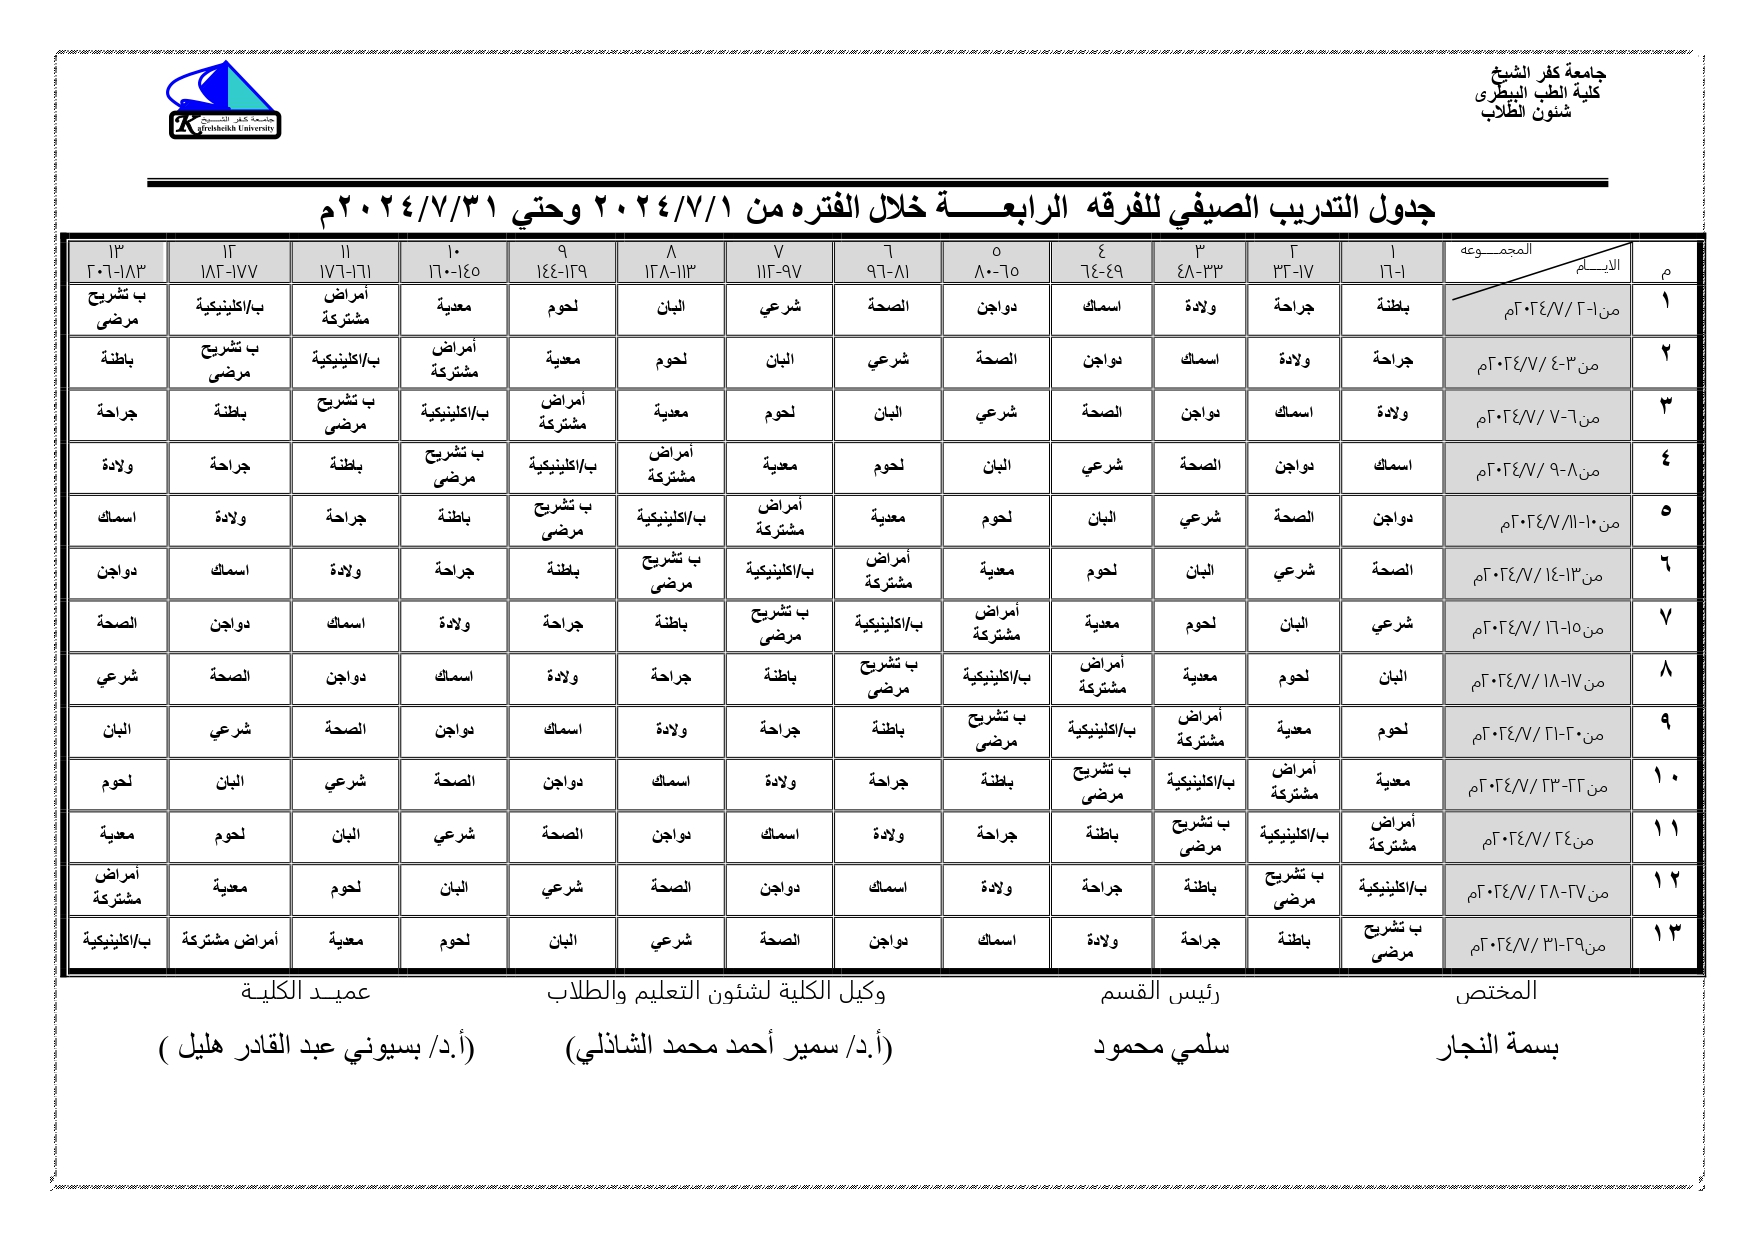 جامعة كفر الشيخ
كلية الطب البيطرى
شئون الطلاب
جامعة كفر الشيخ
Kafrelsheikh University
جدول التدريب الصيفي للفرقه الرابعــــــة خلال الفتره من ٢٠٢٤/٧/١ وحتي ٢٠٢٤/٧/٣١م
م المجموعه الايام ١ ١-١٦ ٢ ١٧-٣٢ ٣ ٣٣-٤٨ ٤ ٤٩-٦٤ ٥ ٦٥-٨٠ ٦ ٨١-٩٦ ٧ ٩٧-١١٢ ٨ ١١٣-١٢٨ ٩ ١٢٩-١٤٤ ١٠ ١٤٥-١٦٠ ١١ ١٦١-١٧٦ ١٢ ١٧٧-١٨٢ ١٣ ١٨٣-٢٠٦
١ من١-٢ /٢٠٢٤/٧م باطنة جراحة ولادة اسماك دواجن الصحة شرعي البان لحوم معدية أمراض مشتركة ب/اكلينيكية ب تشريح مرضى
٢ من٣-٤ /٢٠٢٤/٧م جراحة ولادة اسماك دواجن الصحة شرعي البان لحوم معدية أمراض مشتركة ب/اكلينيكية ب تشريح مرضى باطنة
٣ من٦-٧ /٢٠٢٤/٧م ولادة اسماك دواجن الصحة شرعي البان لحوم معدية أمراض مشتركة ب/اكلينيكية ب تشريح مرضى باطنة جراحة
٤ من٨-٩ /٢٠٢٤/٧م اسماك دواجن الصحة شرعي البان لحوم معدية أمراض مشتركة ب/اكلينيكية ب تشريح مرضى باطنة جراحة ولادة
٥ من١٠-١١/٢٠٢٤/٧م دواجن الصحة شرعي البان لحوم معدية أمراض مشتركة ب/اكلينيكية ب تشريح مرضى باطنة جراحة ولادة اسماك
٦ من١٣-١٤ /٢٠٢٤/٧م الصحة شرعي البان لحوم معدية أمراض مشتركة ب/اكلينيكية ب تشريح مرضى باطنة جراحة ولادة اسماك دواجن
٧ من١٥-١٦ /٢٠٢٤/٧م شرعي البان لحوم معدية أمراض مشتركة ب/اكلينيكية ب تشريح مرضى باطنة جراحة ولادة اسماك دواجن الصحة
٨ من١٧-١٨ /٢٠٢٤/٧م البان لحوم معدية أمراض مشتركة ب/اكلينيكية ب تشريح مرضى باطنة جراحة ولادة اسماك دواجن الصحة شرعي
٩ من٢٠-٢١ /٢٠٢٤/٧م لحوم معدية أمراض مشتركة ب/اكلينيكية ب تشريح مرضى باطنة جراحة ولادة اسماك دواجن الصحة شرعي البان
١٠ من٢٢-٢٣ /٢٠٢٤/٧م معدية أمراض مشتركة ب/اكلينيكية ب تشريح مرضى باطنة جراحة ولادة اسماك دواجن الصحة شرعي البان لحوم
١١ من٢٤ /٢٠٢٤/٧م أمراض مشتركة ب/اكلينيكية ب تشريح مرضى باطنة جراحة ولادة اسماك دواجن الصحة شرعي البان لحوم معدية
١٢ من٢٧-٢٨ /٢٠٢٤/٧م ب/اكلينيكية ب تشريح مرضى باطنة جراحة ولادة اسماك دواجن الصحة شرعي البان لحوم معدية أمراض مشتركة
١٣ من٢٩-٣١ /٢٠٢٤/٧م ب تشريح مرضى باطنة جراحة ولادة اسماك دواجن الصحة شرعي البان لحوم معدية أمراض مشتركة ب/اكلينيكية
المختص رئيس القسم وكيل الكلية لشئون التعليم والطلاب عميــد الكليـة
بسمة النجار سلمي محمود (أ.د/ سمير أحمد محمد الشاذلي) (أ.د/ بسيوني عبد القادر هليل )